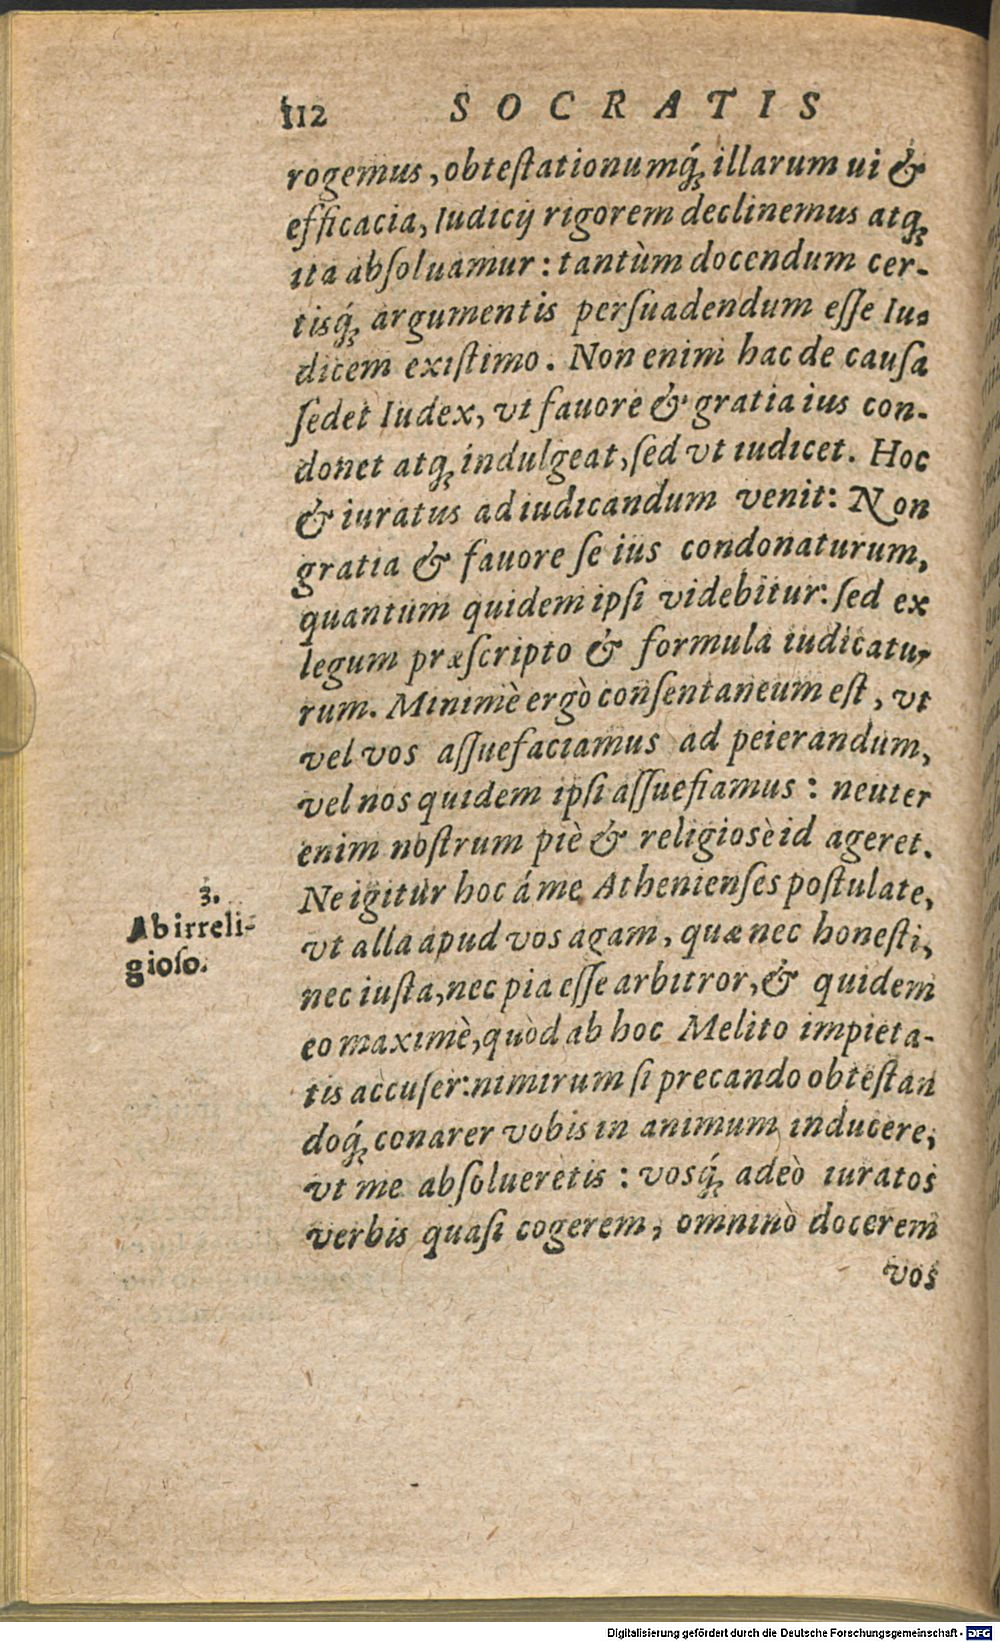 112 SOCRATIS
rogemus, obteſtationumq́; illarum ui &
efficacia, Iudicij rigorem declinemus atq;
ita abſoluamur: tantùm docendum cer-
tisq́; argumentis perſuadendum eſſe Iu-
dicem exiſtimo. Non enim hac de cauſa
ſedet Iudex, vt fauore & gratia ius con-
donet atq; indulgeat, ſed vt iudicet. Hoc
& iuratus ad iudicandum venit: Non
gratia & fauore ſe ius condonaturum,
quantum quidem ipſi videbitur: ſed ex
legum præſcripto & formula iudicatu-
rum. Minimè ergò conſentaneum eſt, vt
vel vos aſſuefaciamus ad peierandum,
vel nos quidem ipſi aſſuefiamus: neuter
enim noſtrum piè & religioſè id ageret.
Ne igitur hoc á me Athenienſes poſtulate,
3.
Ab irreli-
gioſo.
vt alla apud vos agam, quæ nec honeſti,
nec iuſta, nec pia eſſe arbitror, & quidem
eo maximè, quòd ab hoc Melito impieta-
tis accuſer: nimirum ſi precando obteſtan
doq́; conarer vobis in animum inducere,
vt me abſolueretis: vosq́; adeò iuratos
verbis quaſi cogerem, omninò docerem
vos
Digitalisierung gefördert durch die Deutsche Forschungsgemeinschaft - DFG